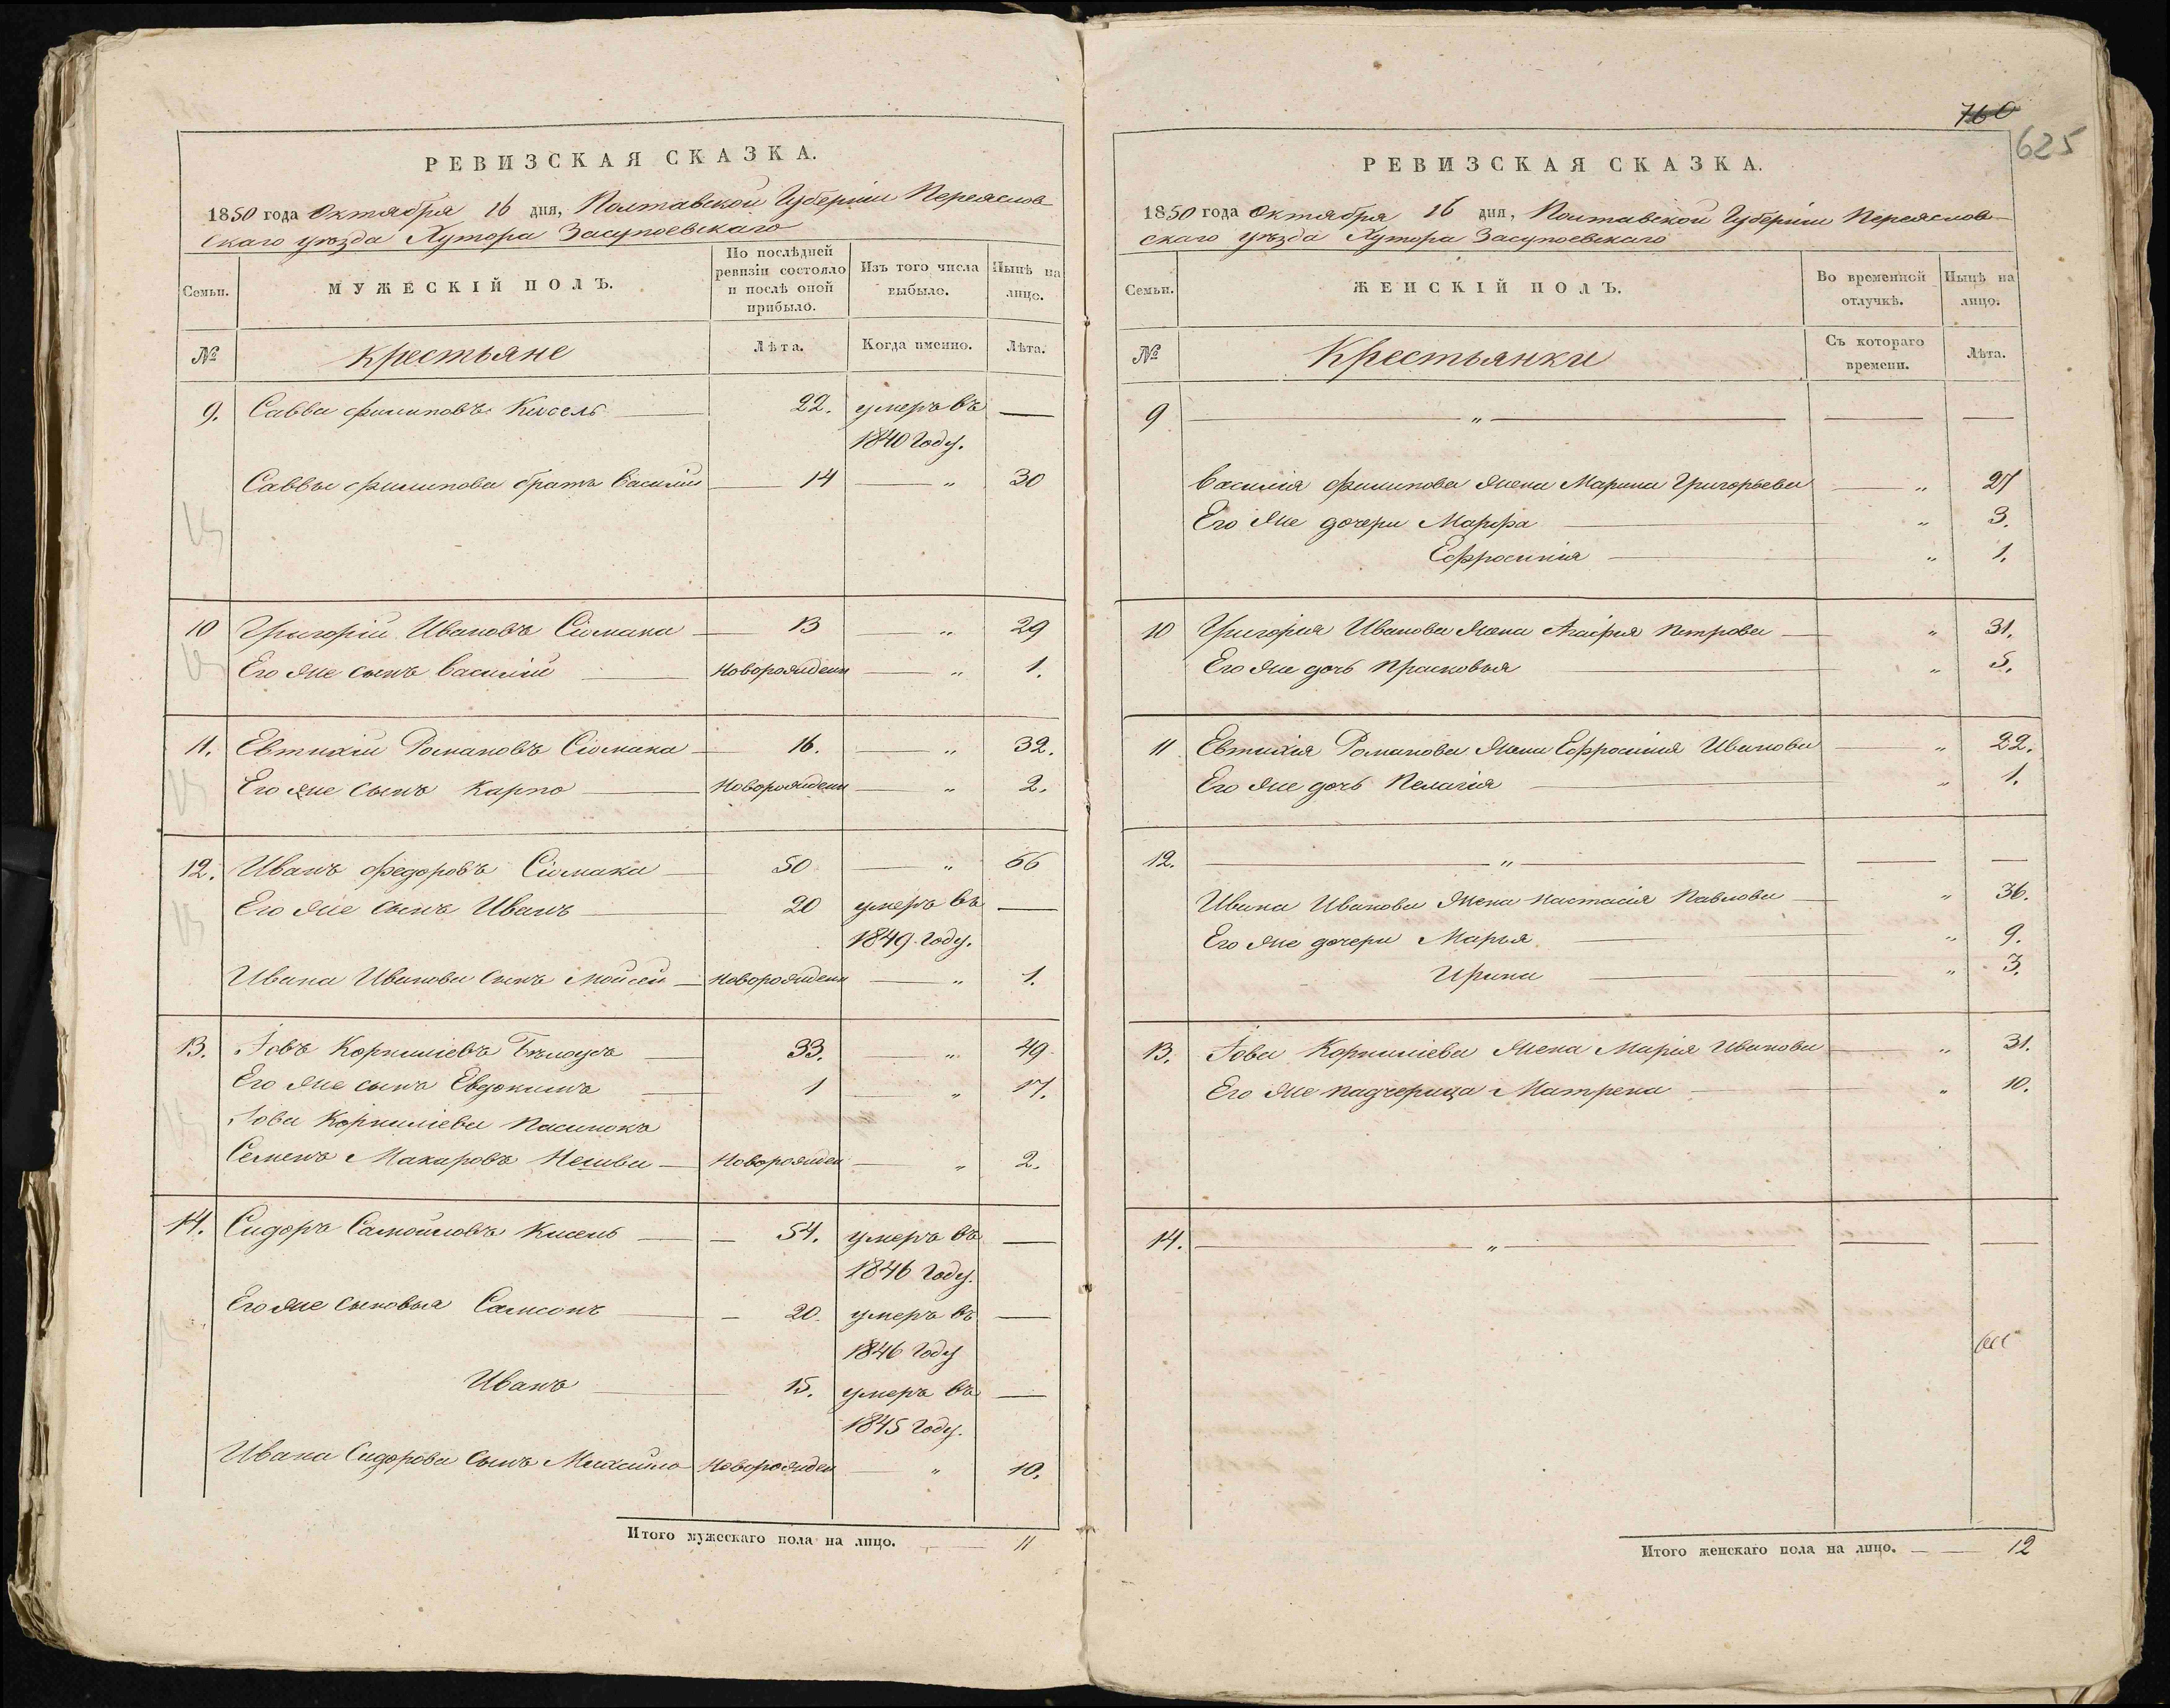 РЕВИЗСКАЯ СКАЗКА.
1850 года Октября 16 дня, Полтавской Губерніи Переяслов-
скаго уѣзда Хутора Засупоевскаго
Семьи. МУЖЕСКІЙ ПОЛЪ. По послѣдней ревизіи состояло и послѣ оной прибыло. Изъ того числа выбыло. Нынѣ на лицо.
№ Крестьяне Лѣта. Когда именно. Лѣта.
9. Савва Филиповъ Кисель — 22. умеръ въ —
1840 Году.
Саввы Филипова братъ Василій — 14 — " 30
10 Григорій Ивановъ Сіомака — 13 — " 29
Его же сынъ Василій — Новорожден — " 1.
11. Евтихій Романовъ Сіомака — 16. — " 32.
Его же сынъ Карпо — Новорожден — " 2.
12. Иванъ Федоровъ Сіомака — 50 — " 66
Его же сынъ Иванъ — 20 умеръ въ —
1849 Году.
Ивана Иванова сынъ Мойсей — Новорожден — " 1.
13. Іовъ Корниліевъ Бѣлоусъ — 33. — " 49.
Его же сынъ Евдокимъ — 1 — " 17.
Іова Корниліева пасинокъ
Семенъ Макаровъ — Новорожден — " 2.
14. Сидоръ Самойловъ Кисель — 54. умеръ въ —
1846 Году.
Его же сыновья Самсонъ — 20. умеръ въ —
1846 Году
Иванъ — 15. умеръ въ —
1845 Году.
Ивана Сидорова сынъ Максимъ Новорожден — " 10.
Итого мужескаго пола на лицо. — 11
760
625
РЕВИЗСКАЯ СКАЗКА.
1850 года Октября 16 дня, Полтавской Губерніи Переяслов-
скаго уѣзда Хутора Засупоевскаго
Семьи. ЖЕНСКІЙ ПОЛЪ. Во временной отлучкѣ. Нынѣ на лицо.
№ Крестьянки Съ котораго времени. Лѣта.
9 — " — — —
Василія Филипова жена Марина Григорьева — " 27
Его же дочери Марфа — " 3.
Ефросинія — " 1.
10 Григорія Иванова жена Агафія Петрова — " 31.
Его же дочь Прасковья — " 5.
11 Евтихія Романова жена Ефросинія Иванова — " 22.
Его же дочь Пелагія — " 1.
12. — " — — —
Ивана Иванова жена Настасія Павлова — " 36.
Его же дочери Марья — " 9.
Ирина — " 3.
13. Іова Корниліева жена Марія Иванова — " 31.
Его же падчерица Матрена — " 10.
14. — " — — —
Итого женскаго пола на лицо. — 12